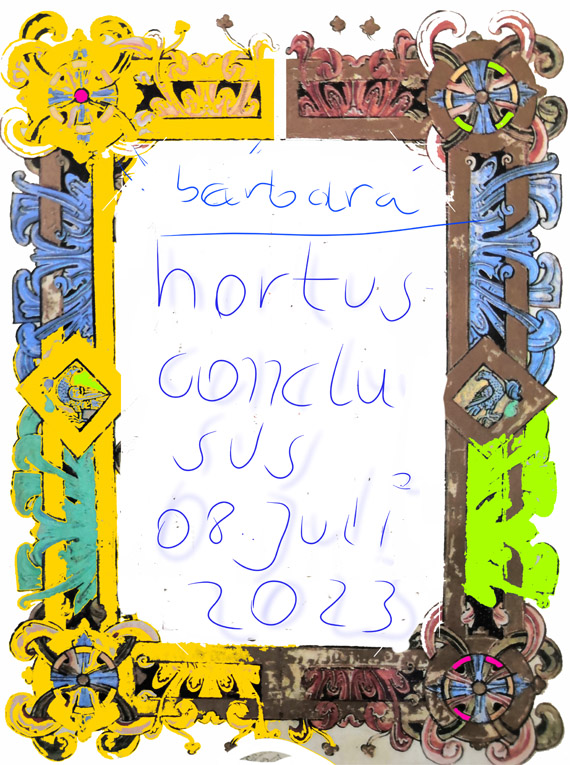 bárbará
hortus
conclu
sus
08. juli
2023